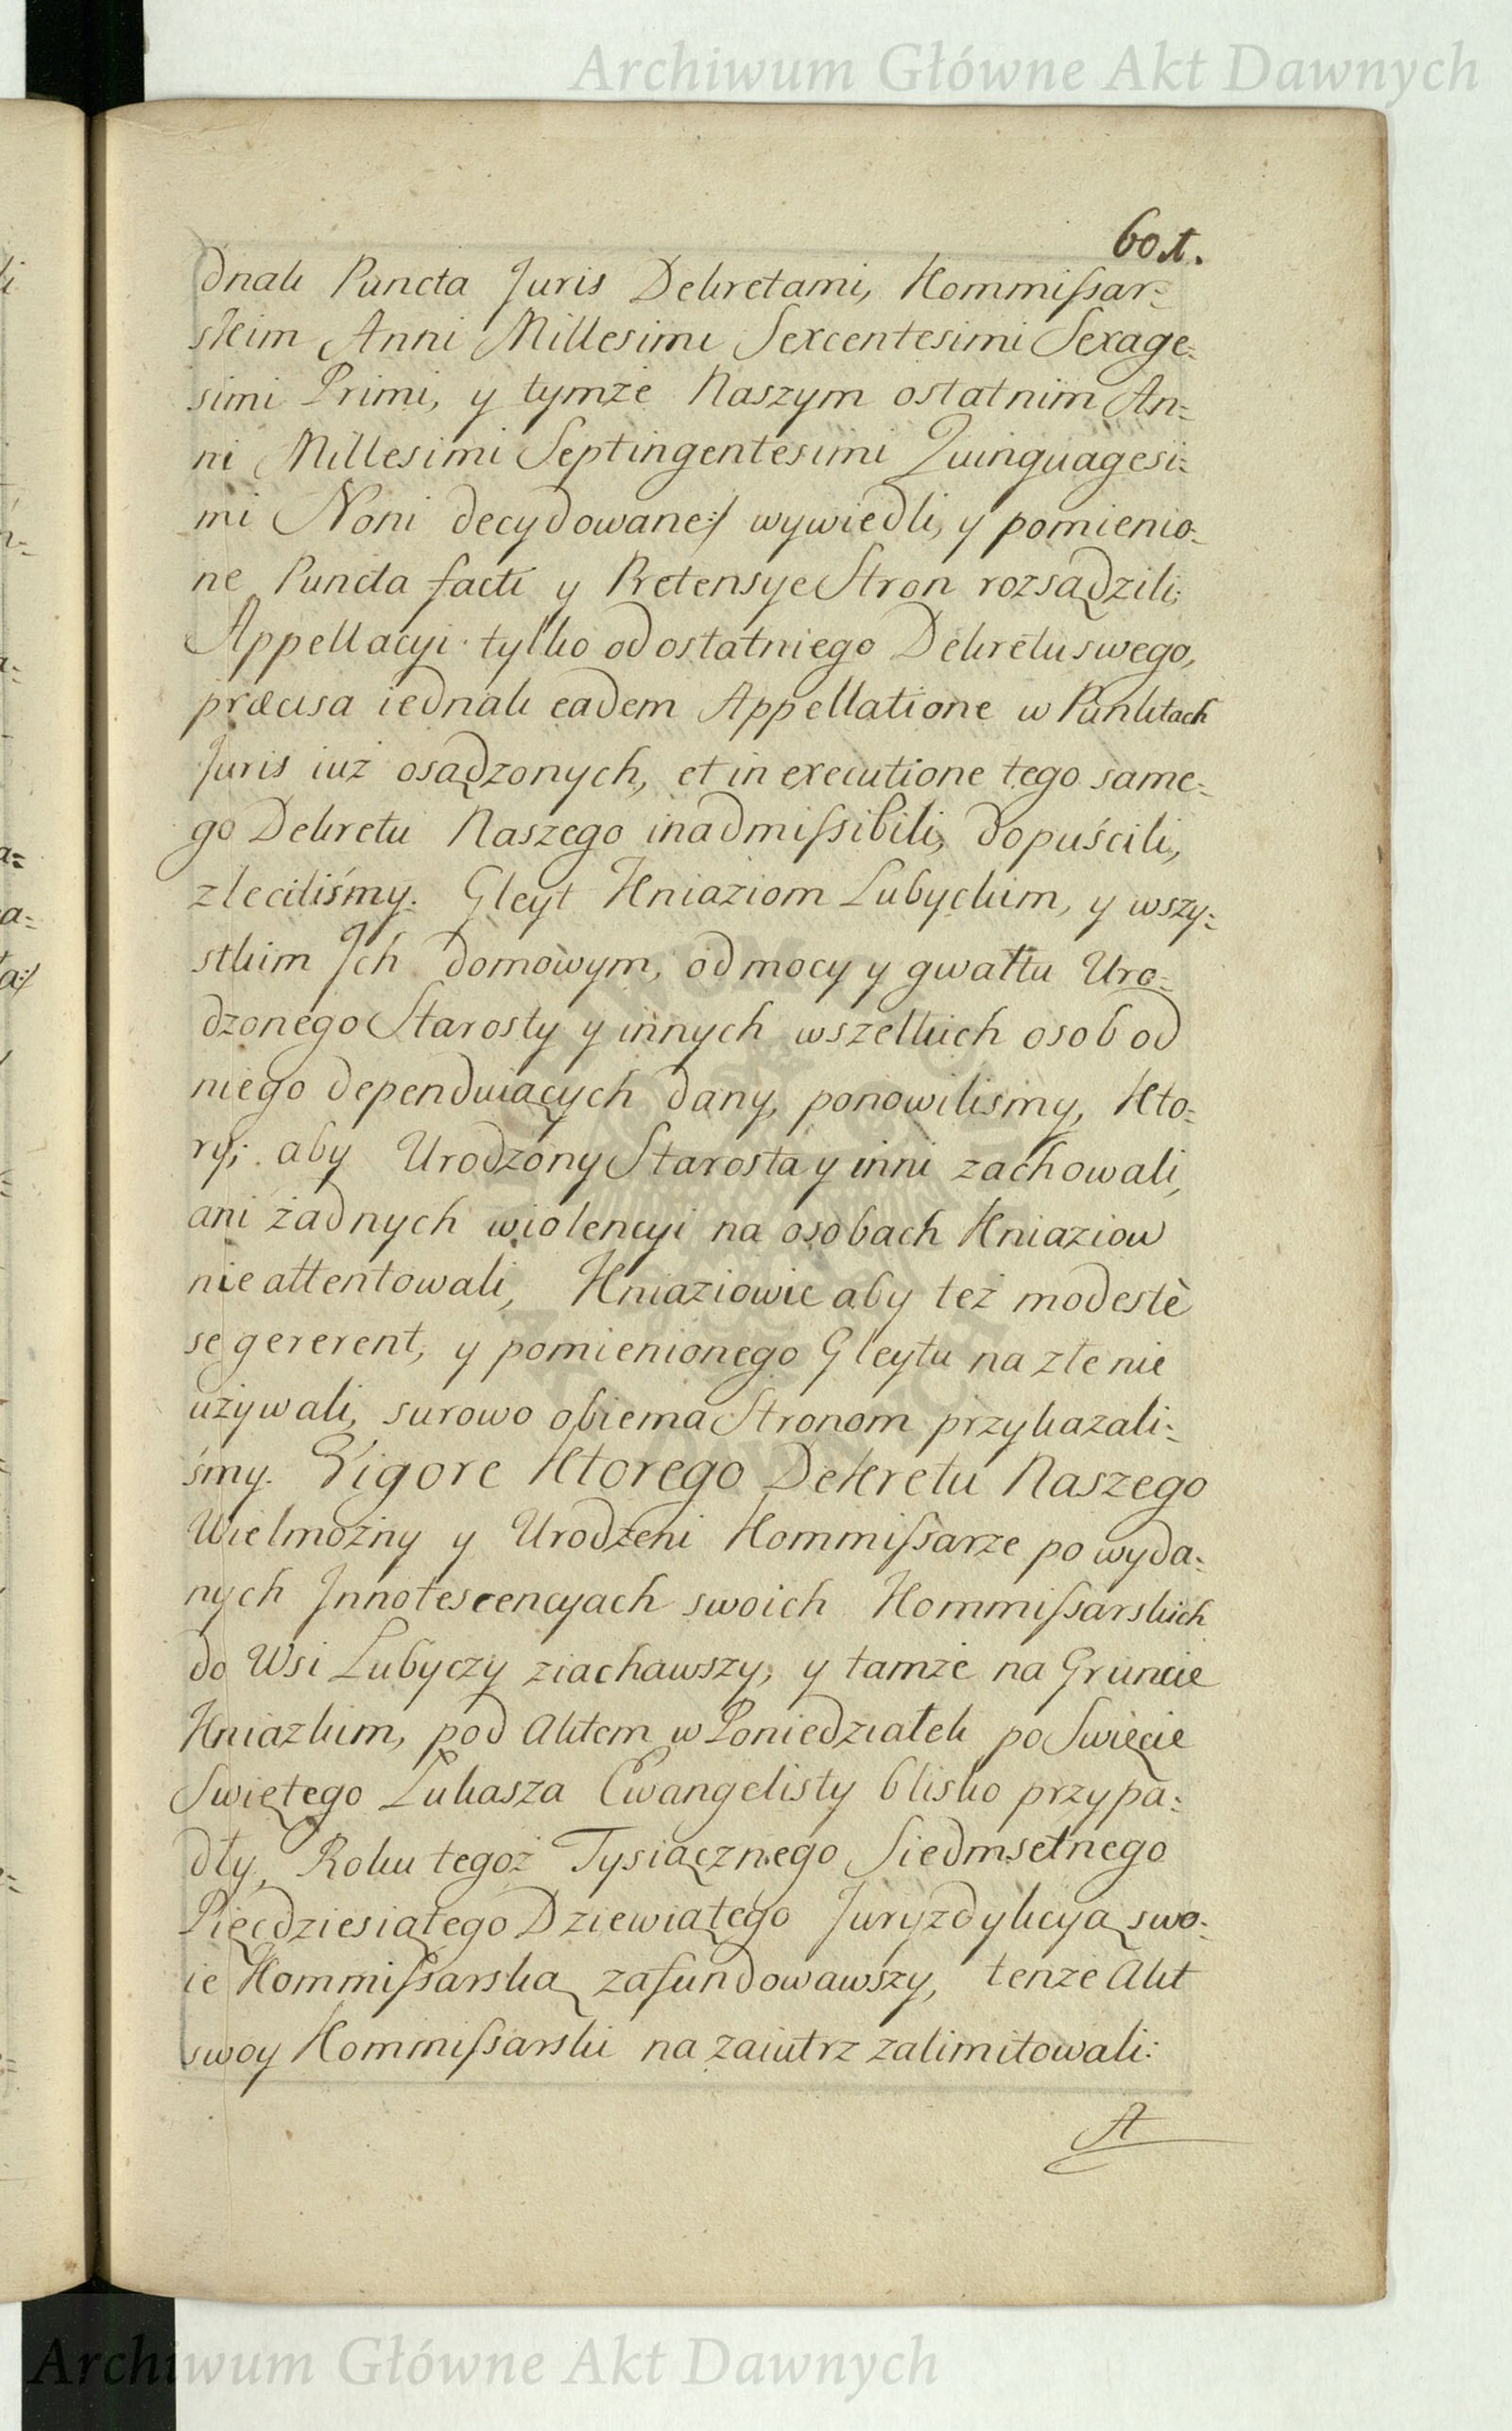 Archiwum Główne Akt Dawnych
601.
dnak Puncta Juris Dekretami, Kommiſsar=
skim Anni Millesimi Sexcentesimi Sexage=
simi Primi, y tymże Naszym ostatnim An=
ni Millesimi Septingentesimi Quinquagesi=
mi Noni decydowane:/ wywiedli, y pomienio=
ne Puncta facti y Pretensye Stron rozsądzili;
Appellacyi tylko od ostatniego Dekretu swego,
præcisa iednak eadem Appellatione w Punktach
Juris iuż osądzonych, et in executione tego same=
go Dekretu Naszego inadmiſsibili, dopuścili,
zleciliśmy. Gleyt Kniaziom Lubyckim, y wszy=
stkim Jch domowym, od mocy y gwałtu Uro=
dzonego Starosty y innych wszelkich osob od
niego dependuiących dany, ponowiliśmy, Kto=
ry; aby Urodzony Starosta y inni zachowali,
ani żadnych wiolencyi na osobach Kniaziow
nie attentowali, Kniaziowie aby też modestè
se gererent, y pomienionego Gleytu na złe nie
używali, surowo obiema Stronom przykazali=
śmy. Vigore Ktorego Dekretu Naszego
Wielmożny y Urodzeni Kommiſsarze po wyda=
nych Jnnotescencyach swoich Kommiſsarskich
do Wsi Lubyczy ziachawszy, y tamże na Gruncie
Kniazkim, pod Aktem w Poniedziałek po Swięcie
Swiętego Lukasza Ewangelisty blisko przypa=
dły, Roku tegoż Tysiącznego Siedmsetnego
Pięcdziesiątego Dziewiątego Juryzdykcyą swo=
ie Kommiſsarską zafundowawszy, tenże Akt
swoy Kommiſsarski na zaiutrz zalimitowali:
A
Archiwum Główne Akt Dawnych